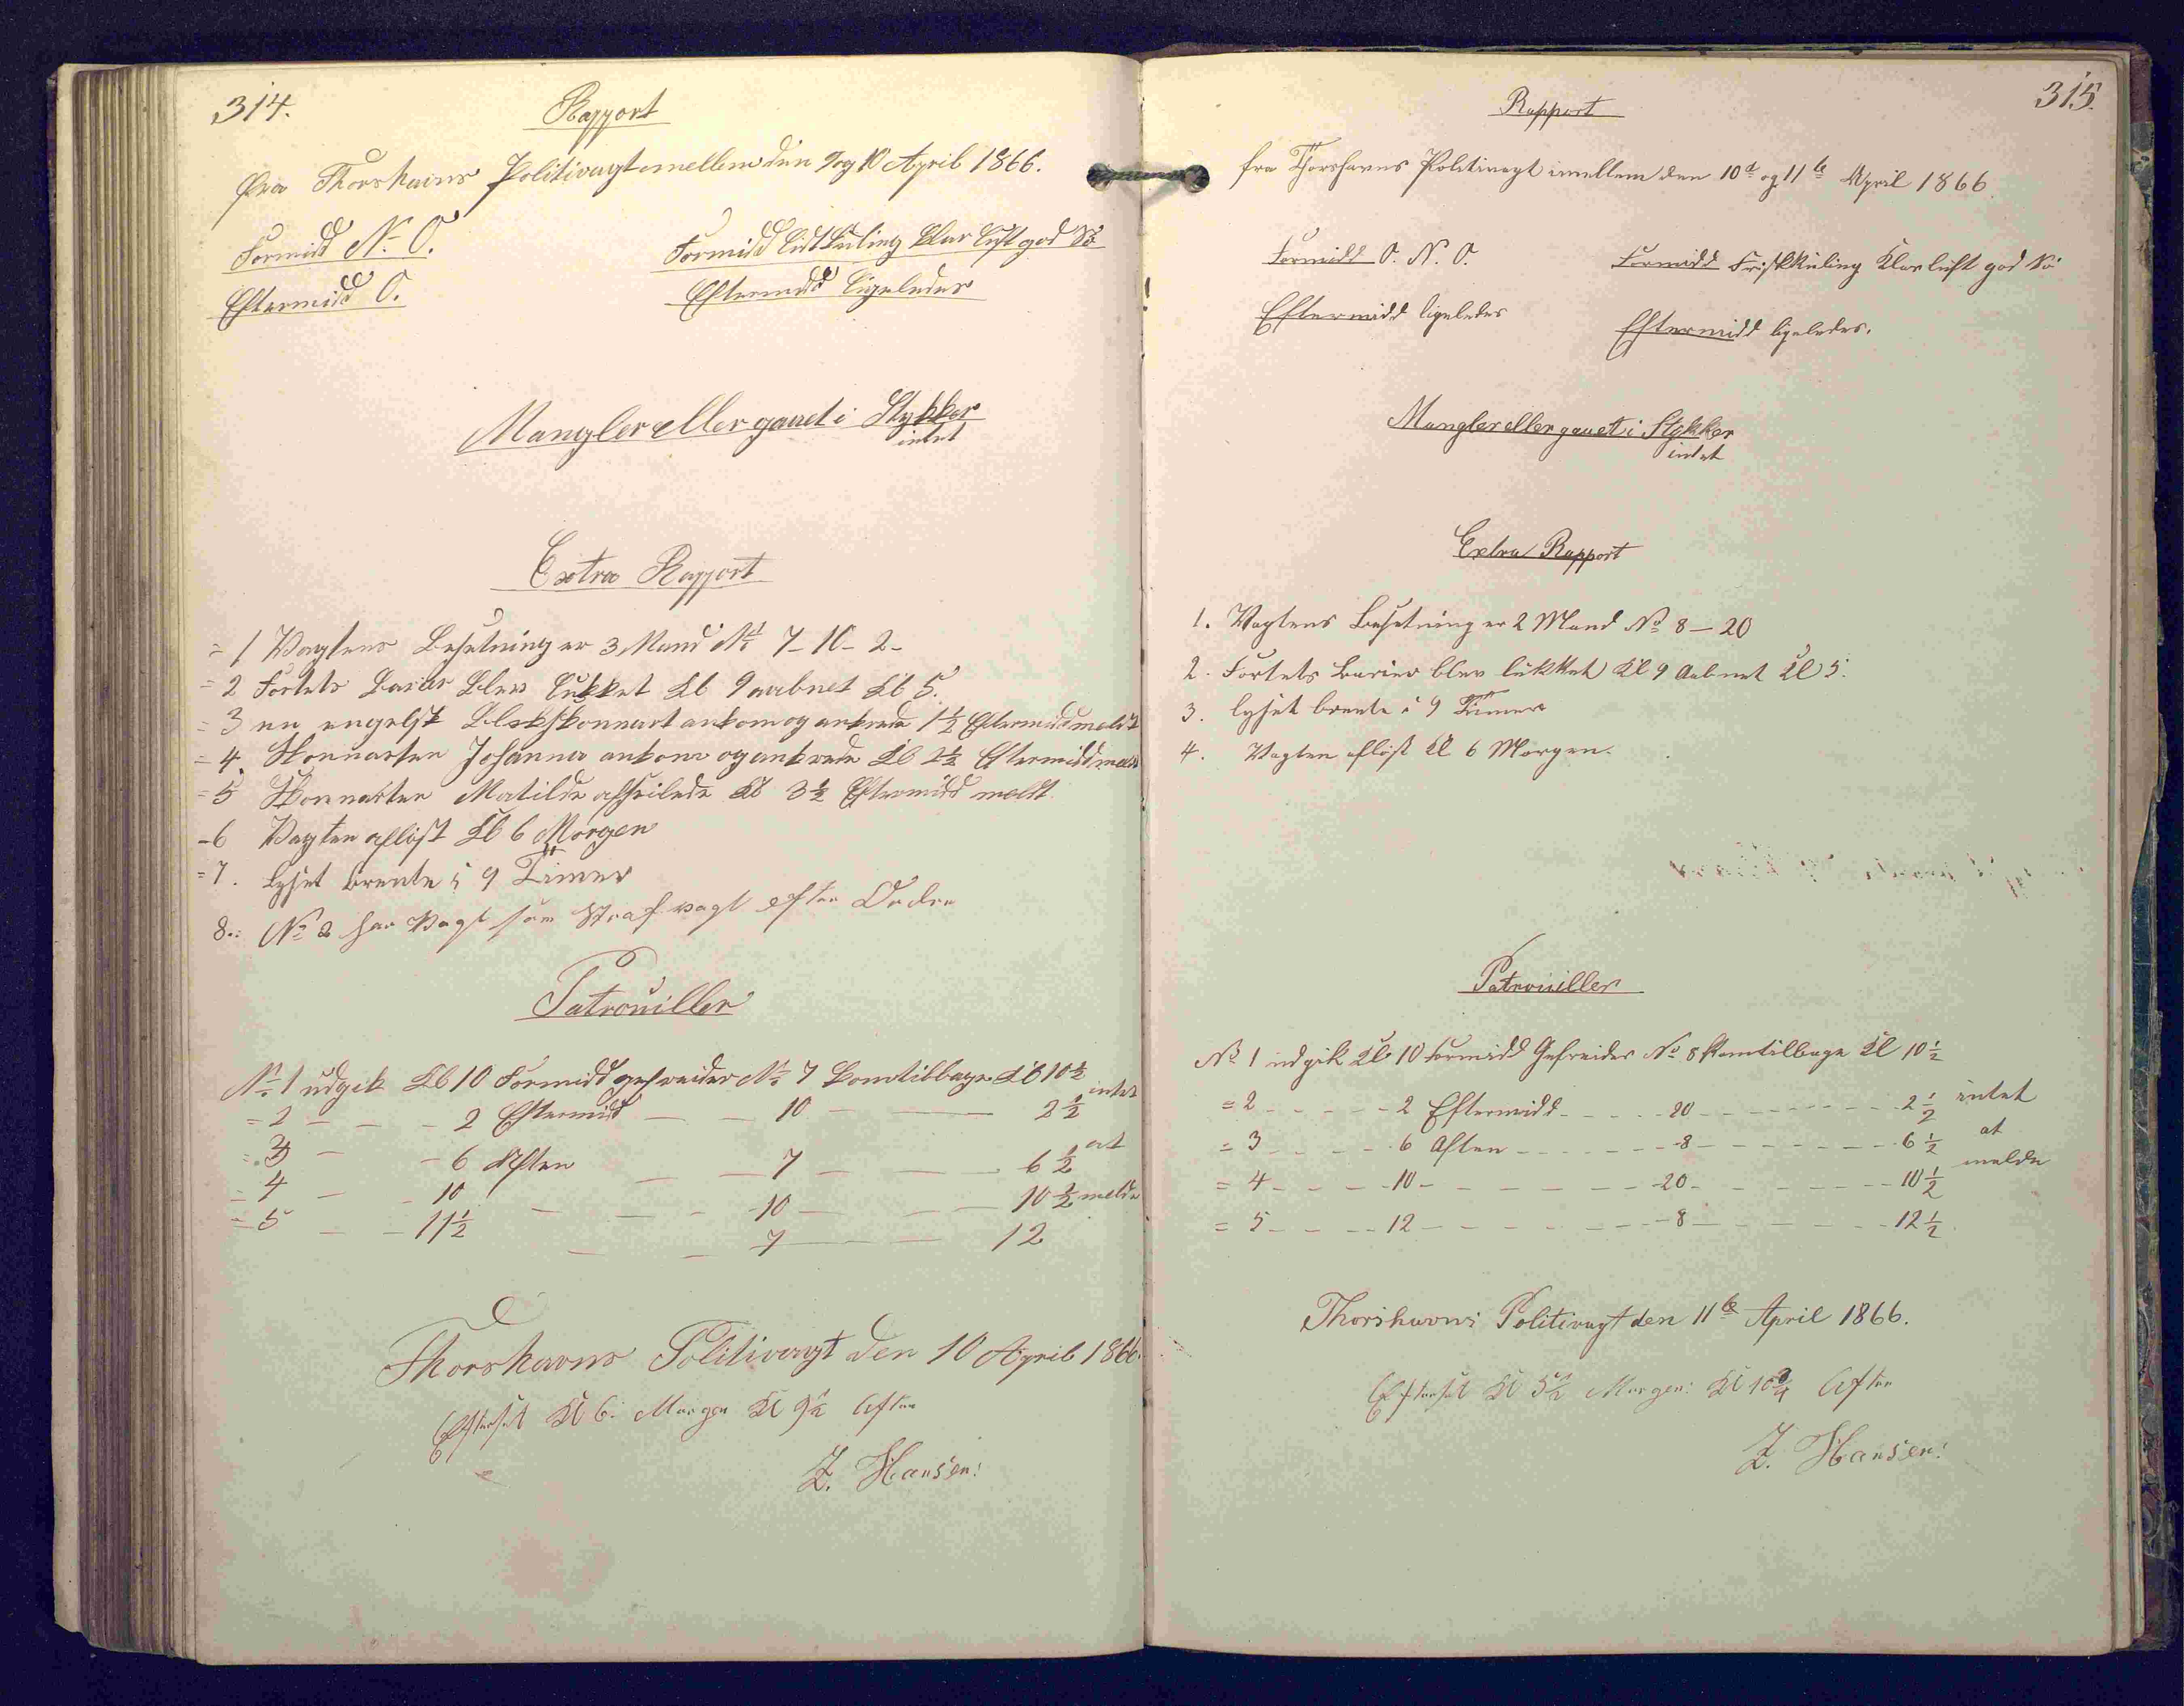 314.
Rapport
fra Thorshavns Politivagt imellem den 9 og 10 April 1866.
Formidd N. O.
Formidd lidt Kuling klar Luft god Sö
Eftermidd O.
Eftermidd ligeledes
Mangler eller gaaet i Stykker
intet
Extra Rapport
= 1 Vagtens Besetning er 3 Mand No 7 - 10 - 2 -
= 2 Fortets Barier blev lukket Kl 9 aabnet Kl 5.
= 3 en engelsk Slubskonnert ankom og ankrede 1½ Eftermidd meldt
= 4. Skonnarten Johanna ankom og ankrede Kl 2½ Eftermidd meldt
= 5 Skonnarten Matilde afseilede Kl 3½ Eftermidd meldt
- 6 Vagten aflöst Kl 6 Morgen
= 7. Lyset brente i 9 Timer
8.: No 2 har Vagt som Strafvagt efter Order
Patrouiller
No 1 udgik Kl 10 Formidd gefreider No 7 Komtilbage Kl 10½ intet
= 2 - - - 2 Eftermidd - - 10 - - 2½
= 3 - - 6 Aften - - 7 - - 6½ at
= 4 - - 10 - - - 10 - - 10½ melde
= 5 - - 11½ - - 7 - - 12
Thorshavns Politivagt den 10 April 1866.
Efterset Kl 6. Morgen Kl 9½ Aften
Z. Hansen:
315.
Rapport
fra Thorshavns Politivagt imellem den 10d og 11te April 1866
Formidd O. N. O.
Formidd Friskkuling Klar luft god Sö
Eftermidd ligeledes
Eftermidd ligeledes.
Mangler eller gaaet i Stykker
intet
Extra Rapport
1. Vagtens Besetning er 2 Mand No 8 - 20
2. Fortets Barier blev lukket Kl 9 Aabnet Kl 5.
3. lyset brente i 9 Timer
4. Vagten aflöst Kl 6 Morgen.
Patrouiller
No 1 udgik Kl 10 Formidd Gefreider No 8 Komtilbage Kl 10½
= 2 - - - - 2 Eftermidd - - - - 20 - - - - 2½ intet
= 3 - - - - 6 Aften - - - - 8 - - - - 6½ at
= 4 - - - - 10 - - - - 20 - - - - 10½ melde
= 5 - - - - 12 - - - - 8 - - - - 12½
Thorshavns Politivagt den 11te April 1866.
Efterset Kl 5½ Morgen: Kl 10¾ Aften
Z. Hansen: